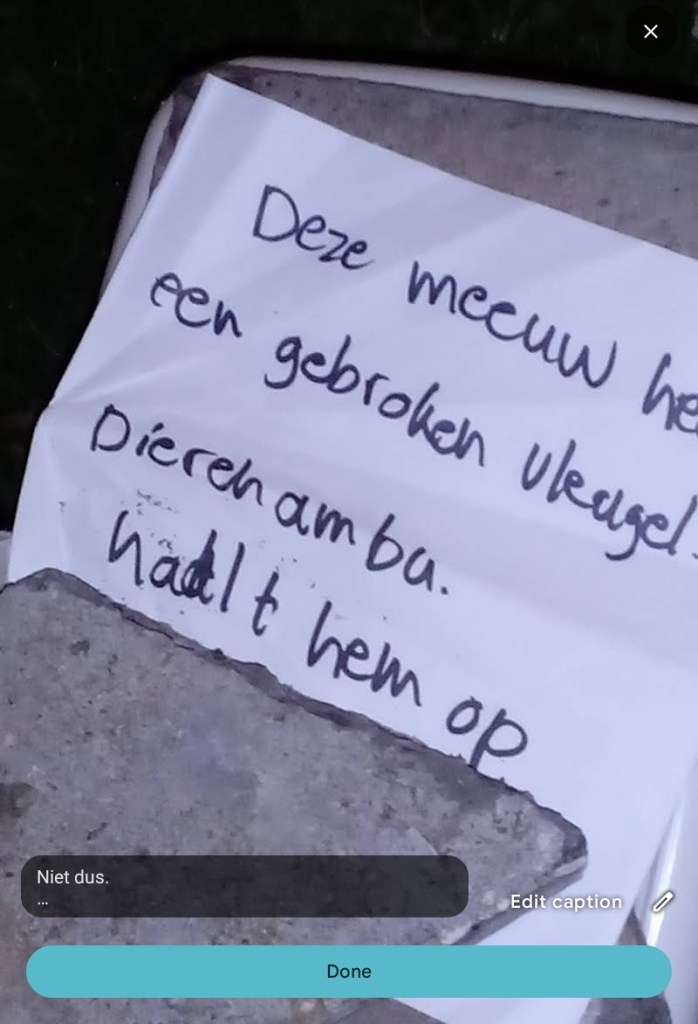 Deze meeuw he
een gebroken vleugel.
Dierenambu.
haalt hem op
Niet dus.
...
Edit caption
Done